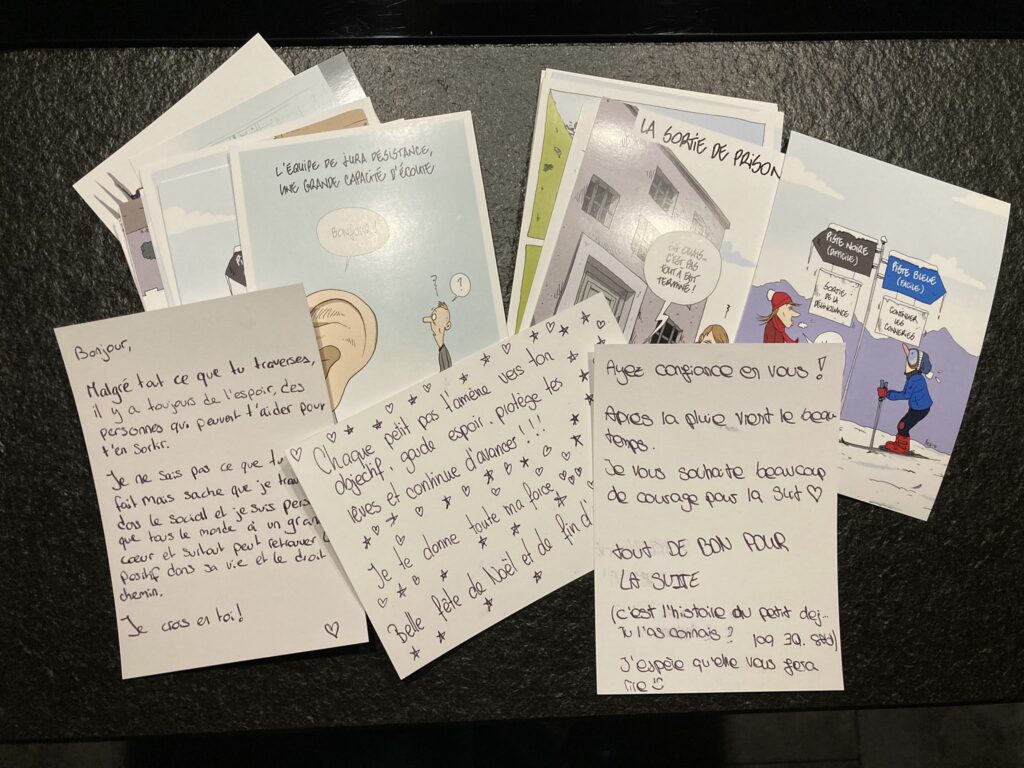 L'ÉQUIPE DE JURA DÉSISTANCE,
UNE GRANDE CAPACITÉ D'ÉCOUTE
BONJOUR !
?
?
LA SORTIE DE PRISON
C'EST PAS
TOUT À FAIT
TERMINÉ !
PISTE NOIRE
(DIFFICILE)
SORTIE
DE LA
DÉLINQUANCE
PISTE BLEUE
(FACILE)
CONTINUER
LES
CONNERIES
Bonjour,
Malgré tout ce que tu traverses,
il y a toujours de l'espoir, des
personnes qui peuvent t'aider pour
t'en sortir.
Je ne sais pas ce que tu
fait mais sache que je trav
dans le social et je suis pers
que tous le monde à un gran
cœur et surtout peut retrouver l
positif dans sa vie et le droit
chemin.
Je crois en toi!
Chaque petit pas t'amène vers ton
objectif, garde espoir, protège tes
rêves et continue d'avancer!!!
Je te donne toute ma force
Belle fête de Noël et de fin d'
Ayez confiance en vous !
Après la pluie vient le beau
temps.
Je vous souhaite beaucoup
de courage pour la suit
TOUT DE BON POUR
LA SUITE
(c'est l'histoire du petit dej...
Tu l'as connais ?
J'espère qu'elle vous fera
rire